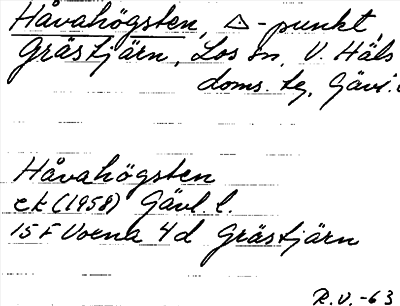 Håvahögsten, △-punkt,
Grästjärn, Los sn, V. Häls
doms. tg, Gävl.
Håvahögsten
ek (1958) Gävl. l.
15 F Voxna 4d Grästjärn
R.V. -63